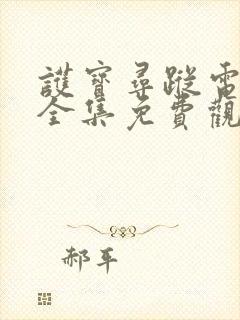 護寶尋蹤電
全集免費觀
郝平